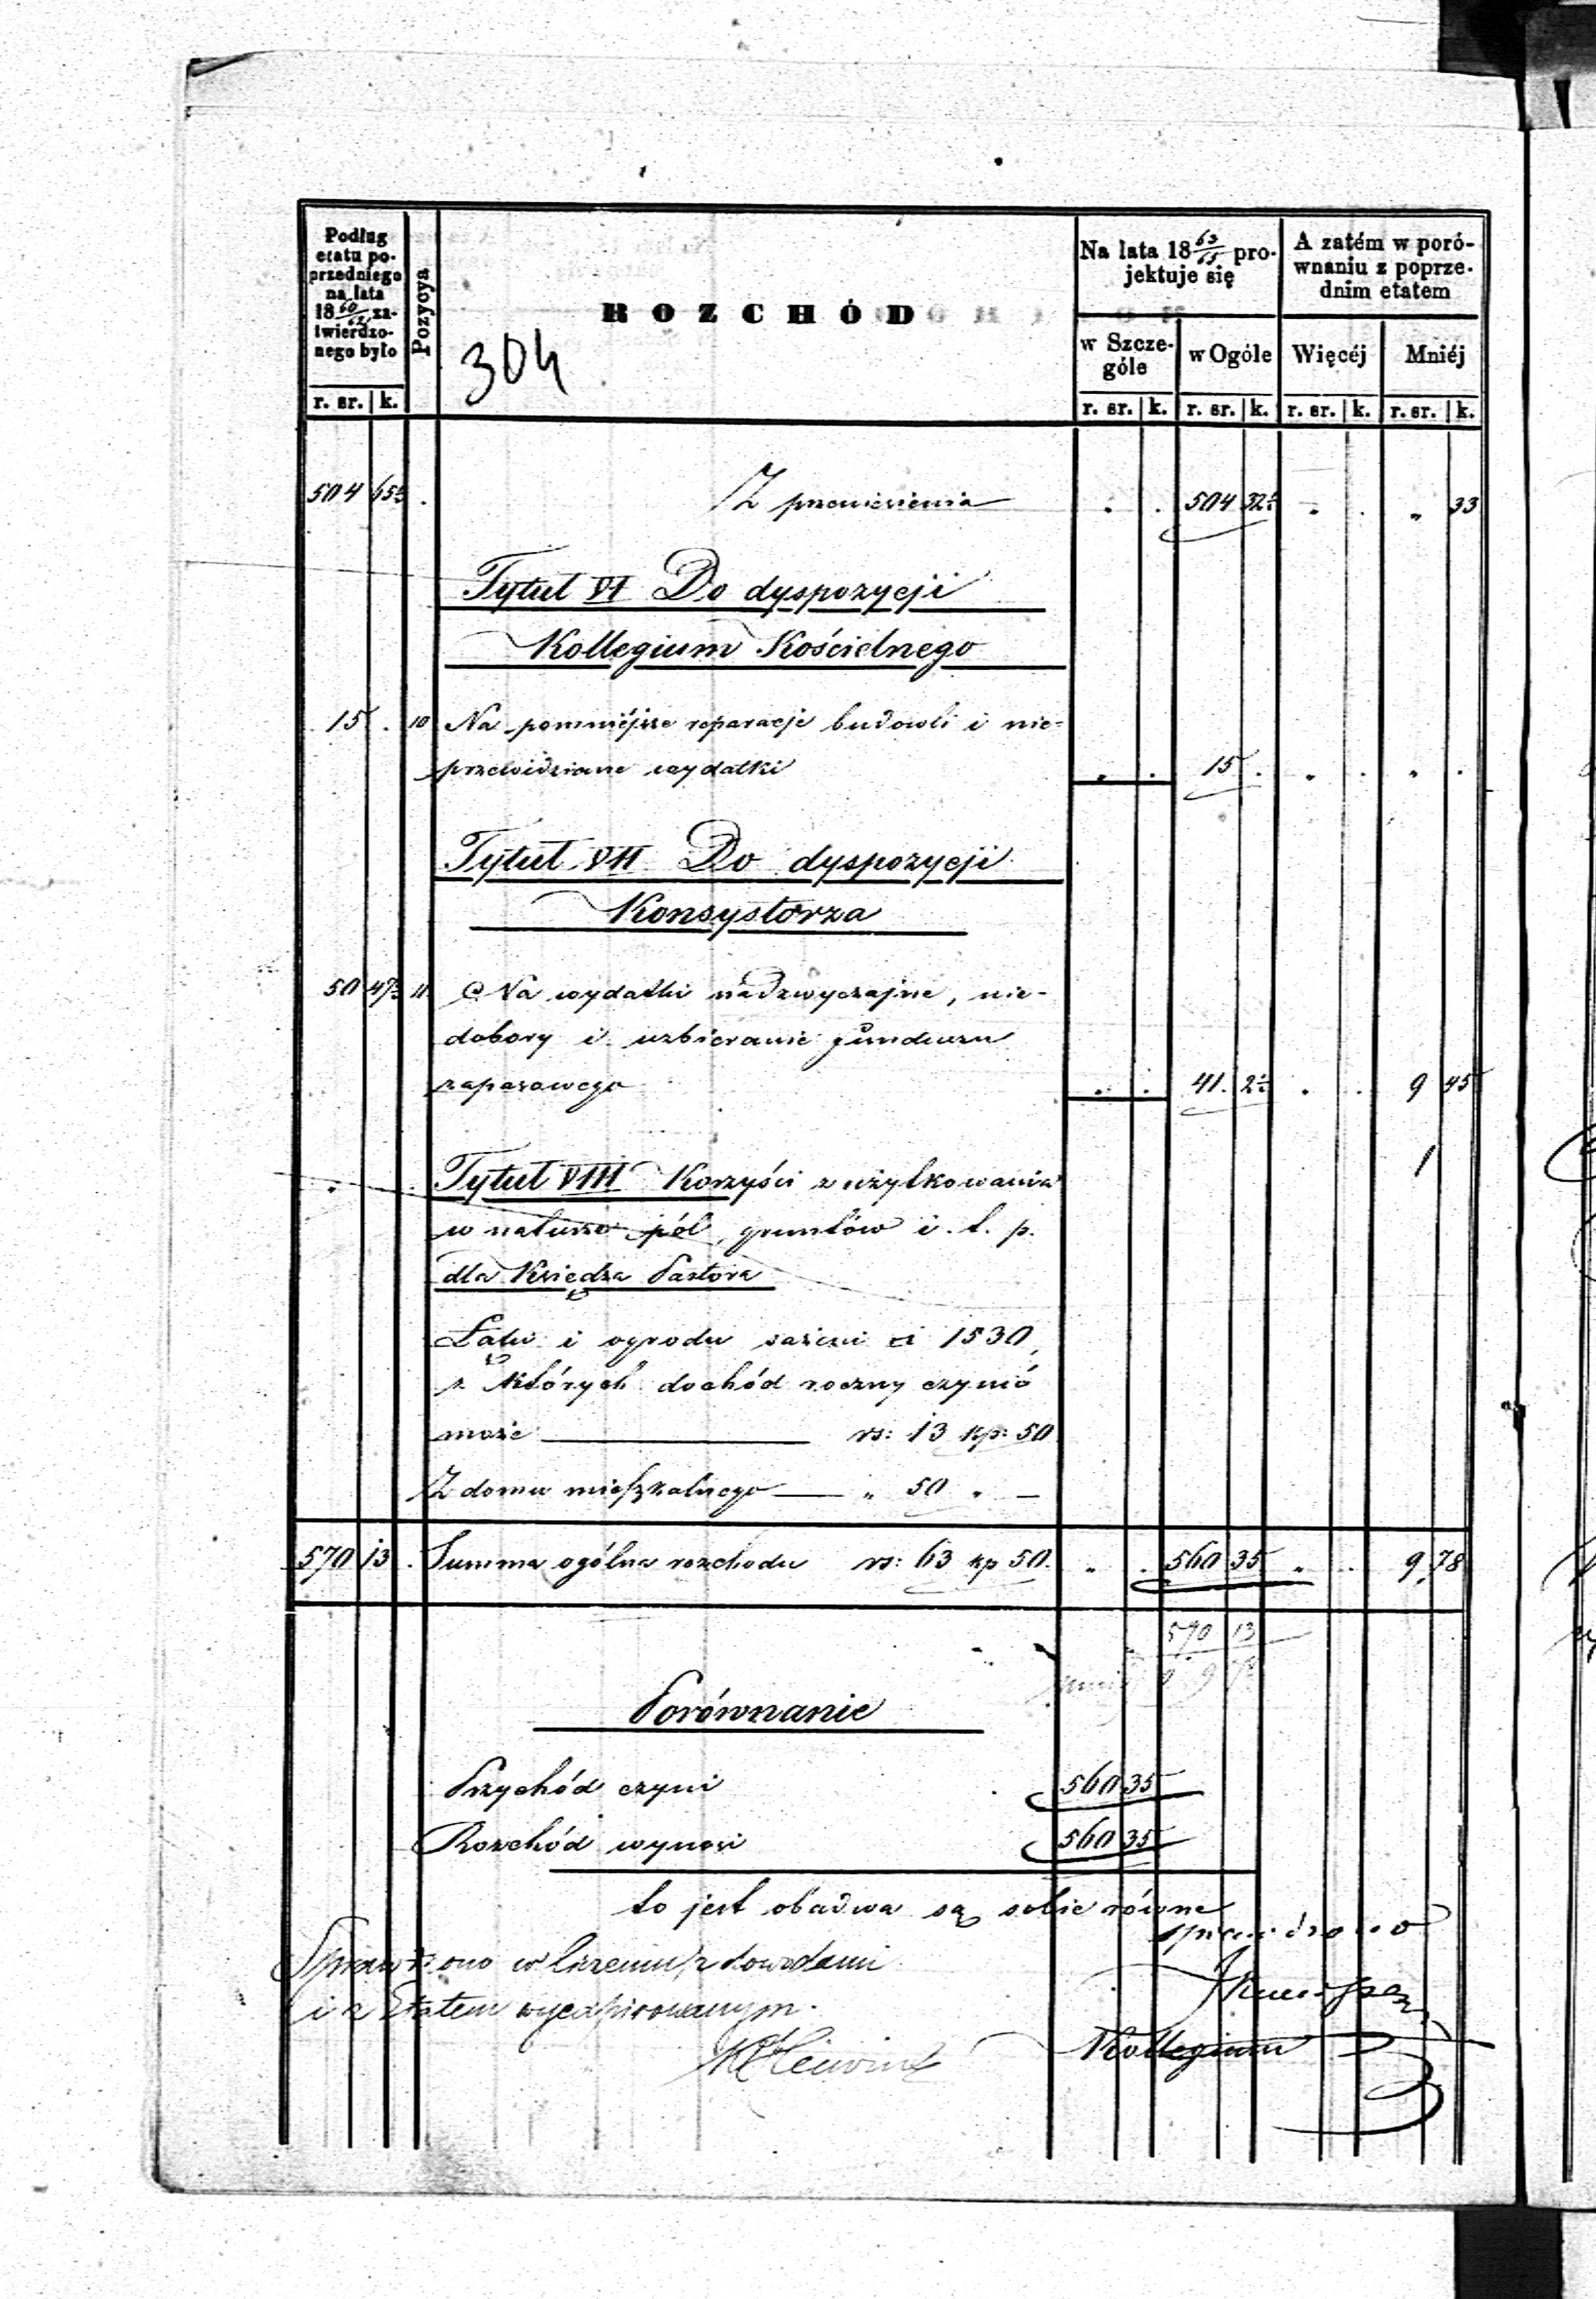 Podług etatu poprzedniego na lata 18 60/62 zatwierdzonego było
Pozycya
ROZCHÓD
Na lata 18 63/65 projektuje się
A zatém w porównaniu z poprzednim etatem
w Szczególe
w Ogóle
Więcéj
Mniéj
r. sr. k.
r. sr. k. r. sr. k. r. sr. k. r. sr. k.
304
504 65½ . Z przeniesienia . . 504 32½ . . „ 33
Tytuł VI Do dyspozycji
Kollegium Kościelnego
15 . 10 Na pomniéjsze reparacje budowli i nie-
przewidziane wydatki . . 15 . . . . .
Tytuł VII Do dyspozycji
Konsystorza
50 47½ 11 Na wydatki nadzwyczajne, nie-
dobory i uzbieranie funduszu
zapasowego . . 41 2½ . . 9 45
Tytuł VIII Korzyści z użytkowania
w naturze pól, gruntów i. t. p.
dla Księdza Pastora
Łąki i ogrodu sążeni □ 1530,
z których dochód roczny czynić
może rs: 13 kp: 50
Z domu mieszkalnego „ 50 „ —
570 13 . Summa ogólna rozchodu rs: 63 kp 50. . . 560 35 . . 9 78
570 13
Porównanie
Przychód czyni 560 35
Rozchód wynosi 560 35
to jest obadwa są sobie równe
Sprawdzono w liczeniu, z dowodami
i z Etatem wyexpirowanym.
Sprawdzono
Kollegium